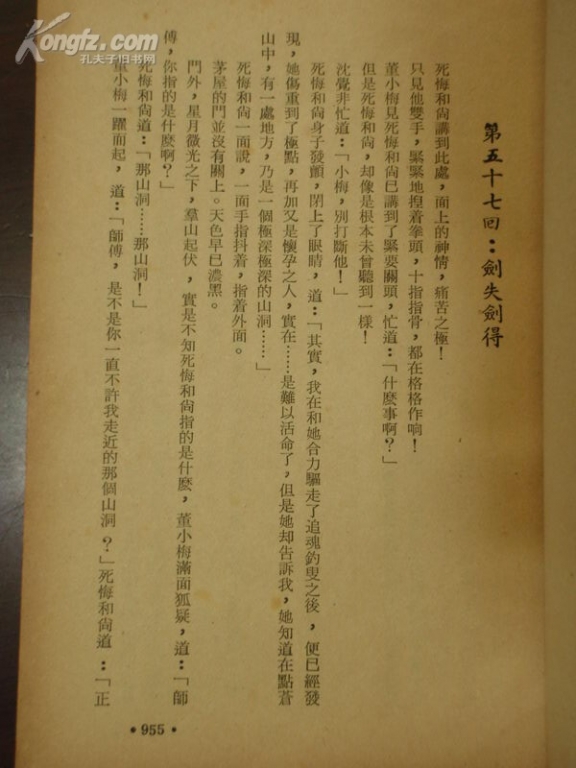 Kongfz.com
孔夫子旧书网
第五十七回：劍失劍得
死悔和尙講到此處，面上的神情，痛苦之極！
只見他雙手，緊緊地揑着拳頭，十指指骨，都在格格作响！
董小梅見死悔和尙已講到了緊要關頭，忙道：「什麼事啊？」
但是死悔和尙，却像是根本未曾聽到一樣！
沈覺非忙道：「小梅，別打斷他！」
死悔和尙身子發顫，閉上了眼睛，道：「其實，我在和她合力驅走了追魂釣叟之後，便已經發
現，她傷重到了極點，再加又是懷孕之人，實在……是難以活命了，但是她却告訴我，她知道在點蒼
山中，有一處地方，乃是一個極深極深的山洞……」
死悔和尙一面說，一面手指抖着，指着外面。
茅屋的門並沒有關上。天色早已濃黑。
門外，星月微光之下，羣山起伏，實是不知死悔和尙指的是什麼，董小梅滿面狐疑，道：「師
傅，你指的是什麼啊？」
死悔和尙道：「那山洞……那山洞！」
董小梅一躍而起，道：「師傅，是不是你一直不許我走近的那個山洞？」死悔和尙道：「正
•955•